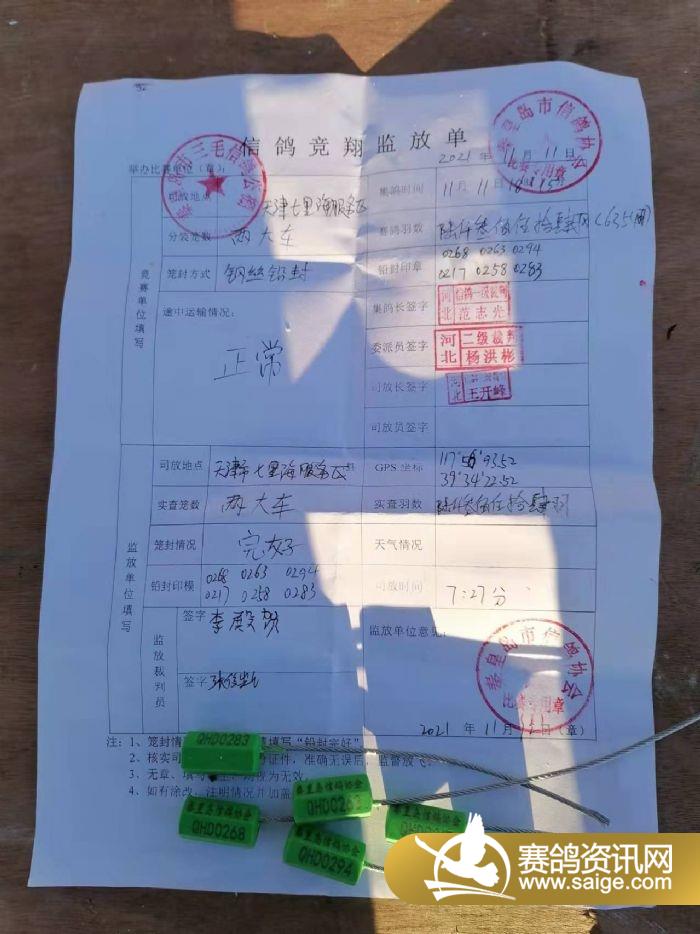 信鸽竞翔监放单
2021年11月11日
秦皇岛市信鸽协会
比赛专用章
举办比赛单位（章）：
市三毛信鸽公棚
竞赛单位填写
司放地点 天津七里海服务区
集鸽时间 11月11日
分装笼数 两大车
赛鸽羽数
笼封方式 钢丝铅封
铅封印章 0268 0263 0294
0217 0258 0283
途中运输情况：
正常
集鸽长签字
河北 范志光
委派员签字
河北 二级裁判 杨洪彬
司放长签字
河北 王开峰
司放员签字
监放单位填写
司放地点 天津市七里海服务区
GPS坐标
39°34'22.52
实查笼数 两大车
实查羽数
笼封情况 完好
天气情况
铅封印模 0268 0263 0294
0217 0258 0283
司放时间 7:27分
监放裁判员
签字
签字
监放单位意见：
秦皇岛市信鸽协会
比赛专用章
2021年11月12日（章）
注：1、笼封情 填写“铅封完好”
2、核实司 证件，准确无误后，监督放飞。
3、无章、填写 为无效。
4、如有涂改，注明情况并加盖
QHD0283
秦皇岛信鸽协会
QHD0268
秦皇岛信鸽协会
QHD0263
秦皇岛信鸽协会
QHD0294
秦皇岛信鸽协会
赛鸽资讯网
www.saige.com